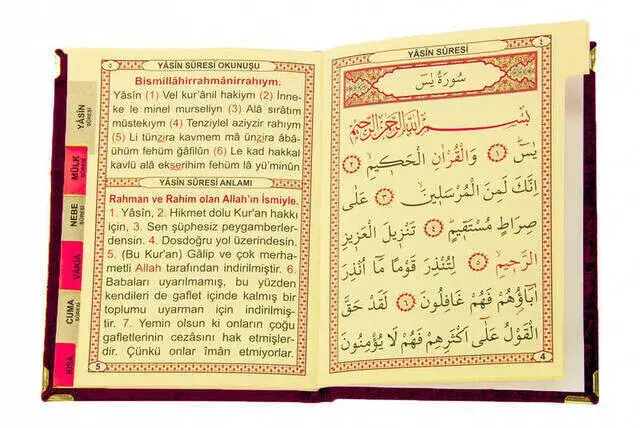 ٥
YÂSÎN SÛRESİ OKUNUŞU
Bismillâhirrahmânirrahıym.
Yâsîn (1) Vel kur'ânil hakiym (2) İnne-
ke le minel murseliyn (3) Alâ sırâtım
müstekıym (4) Tenziylel aziyzir rahıym
(5) Li tünzira kavmem mâ ünzira âbâ-
ühüm fehüm gâfilûn (6) Le kad hakkal
kavlü alâ ekserihim fehüm lâ yü'minûn
YÂSÎN SÛRESİ ANLAMI
Rahman ve Rahim olan Allah'ın İsmiyle.
1. Yâsîn, 2. Hikmet dolu Kur'an hakkı
için, 3. Sen şüphesiz peygamberler-
densin. 4. Dosdoğru yol üzerindesin.
5. (Bu Kur'an) Gâlip ve çok merha-
metli Allah tarafından indirilmiştir. 6.
Babaları uyarılmamış, bu yüzden
kendileri de gaflet içinde kalmış bir
toplumu uyarman için indirilmiş-
tir. 7. Yemin olsun ki onların çoğu
gafletlerinin cezasını hak etmişler-
dir. Çünkü onlar îmân etmiyorlar.
5
YÂSÎN SÛRESİ
MÜLK SÛRESİ
NEBE SÛRESİ
VAKIA
CUMA SÛRESİ
KISA
YÂSÎN SÛRESİ
٤
سُورَةُ يٰسٓ
بِسْمِ اللّٰهِ الرَّحْمٰنِ الرَّحِيمِ
يٰسٓ ﴿١﴾ وَالْقُرْاٰنِ الْحَكِيمِ ﴿٢﴾
اِنَّكَ لَمِنَ الْمُرْسَلِينَ ﴿٣﴾ عَلٰى
صِرَاطٍ مُسْتَقِيمٍ ﴿٤﴾ تَنْزِيلَ الْعَزِيزِ
الرَّحِيمِ ﴿٥﴾ لِتُنْذِرَ قَوْمًا مَٓا اُنْذِرَ
اٰبَٓاؤُهُمْ فَهُمْ غَافِلُونَ ﴿٦﴾ لَقَدْ حَقَّ
الْقَوْلُ عَلٰٓى اَكْثَرِهِمْ فَهُمْ لَا يُؤْمِنُونَ
4